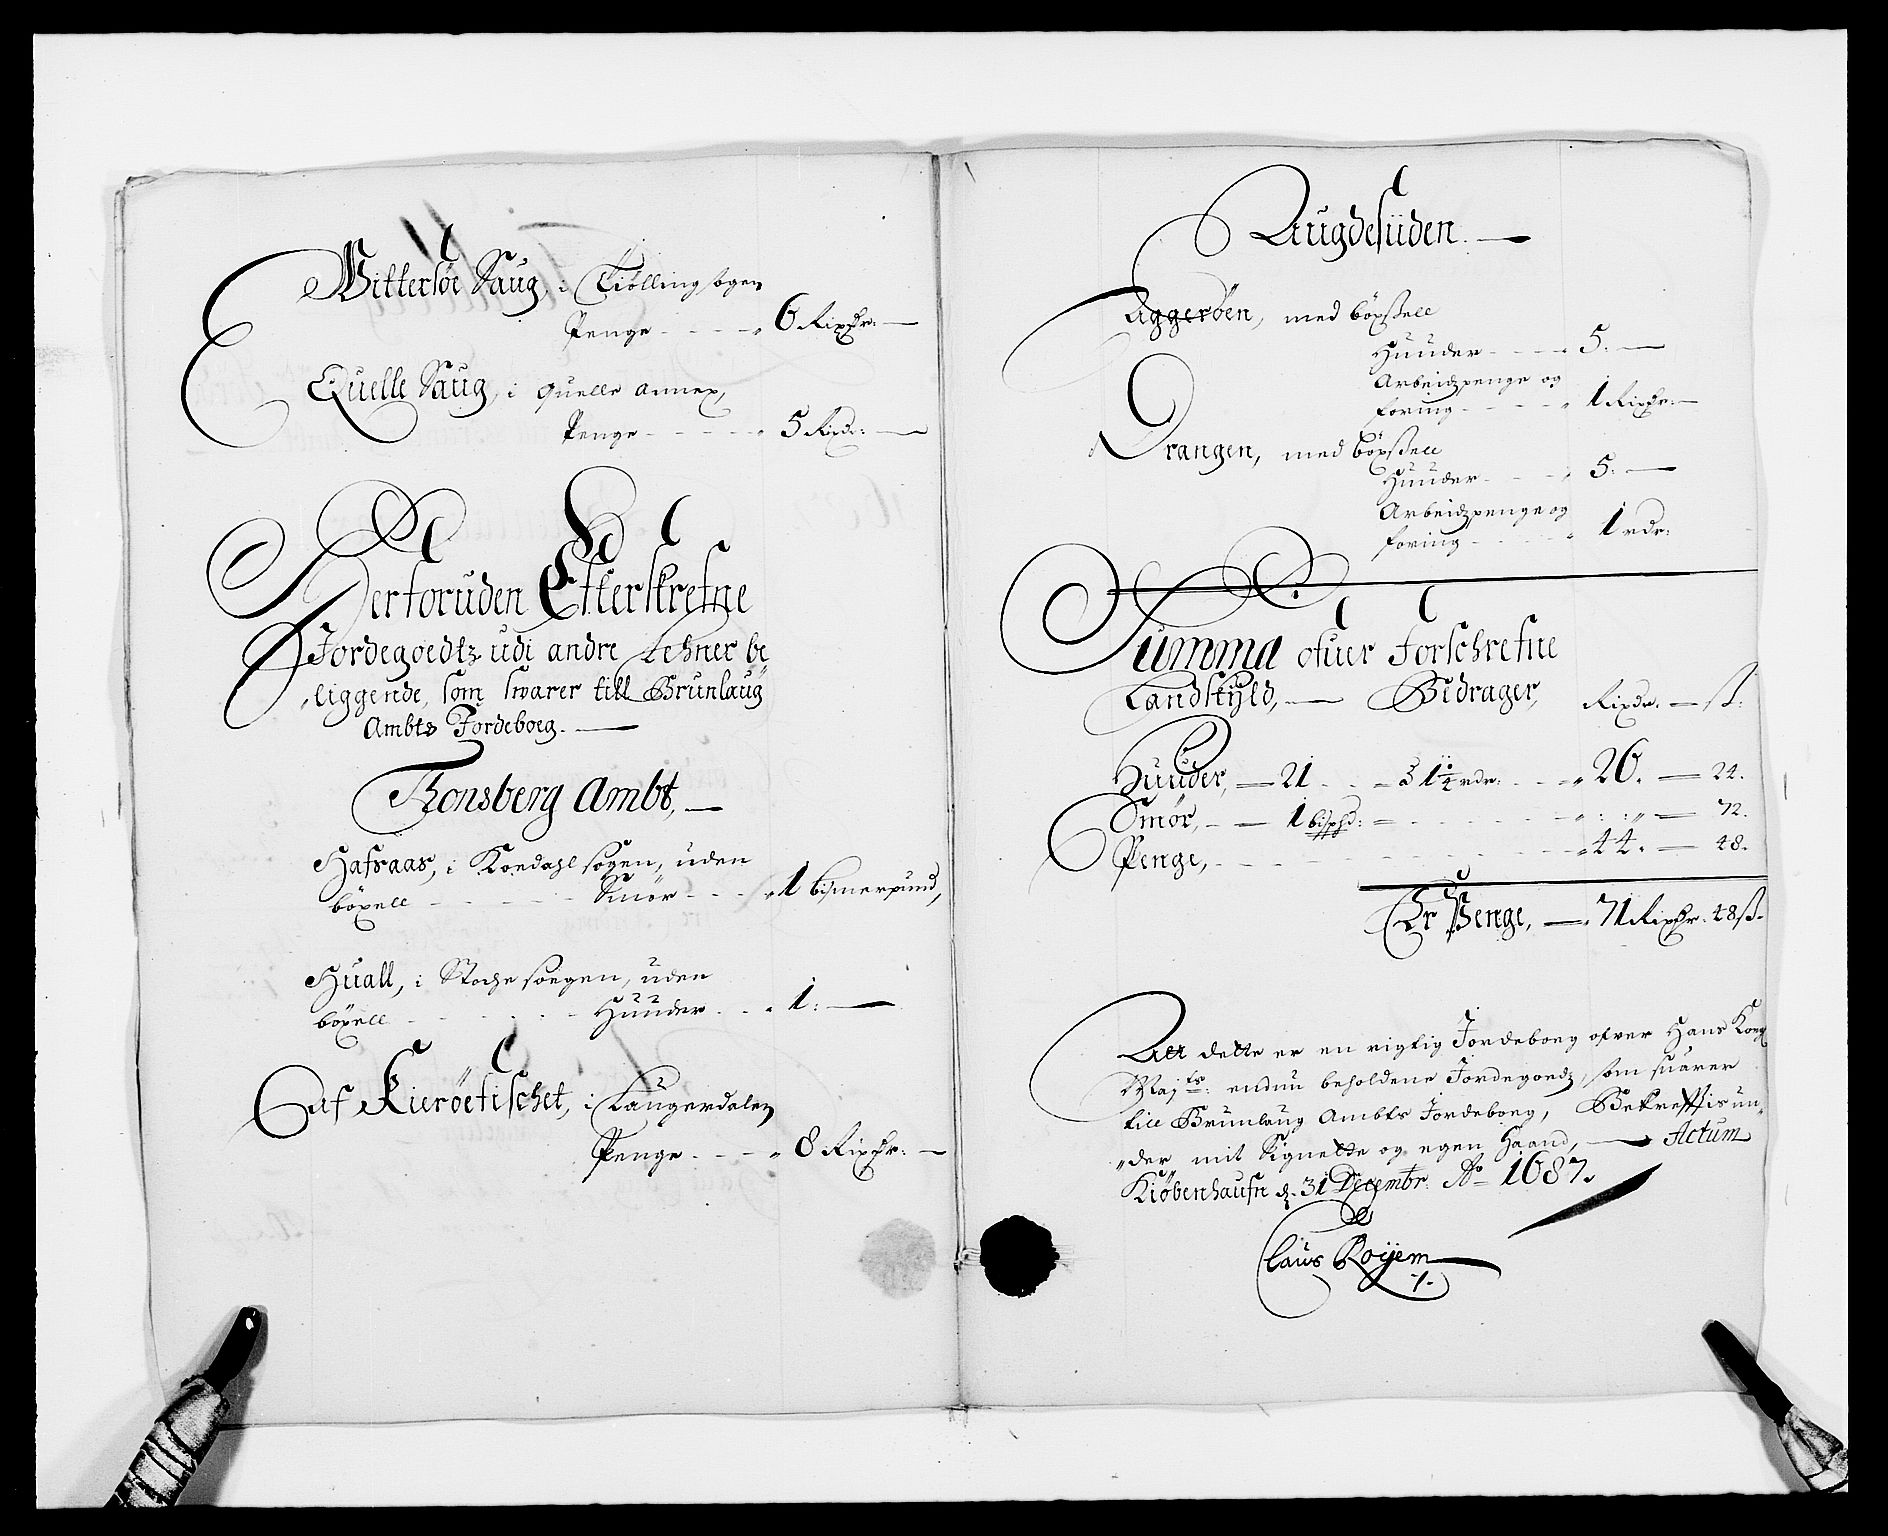 Wittersøe Saug, i Kiølling sogen
Penge - - - - 6 Rixdr: —
Quelle Saug, i Quelle annex,
Penge - - - - 5 Rixdr: —
Herforuden Efterskrefne
Jordegoedtz udi andre Lehner be„
„liggende, som swarer till Brunlaug
Ambts Jordeboeg. —
Tonsberg Ambt, —
Hafraas, i Koedahl sogen, uden
böxell - - - - - Smör - - - „ 1 bismerpund,
Huall, i Stoche soegen, uden
böxell - - - - - Huuder - - - „ 1: —
Af Kierøefischet, i Laugerdalen
Penge - - - - „ 8 Rixdr: —
Augdesiiden. —
Aggerøen, med böxsell
Huuder - - - - 5: —
Arbeidzpenge og
foring - - - - „ 1 Rixdr: —
Drangen, med böxsell
Huuder - - - - 5: —
Arbeidzpenge og
foring - - - - „ 1 rdr:
Summa ofuer Forschrefne
Landskyld, — Bedrager, Rixdr. — ß:
Huuder, — 21 - - - à 1¼ rdr: - - - „ 26. — 24.
Smør, - — 1 bispd: = - - - - - - „ : : „ — 72.
Penge, - - - - - - - - - - - „ 44. — 48.
Er Penge, — 71 Rixdr. 48 ß.
Att dette er en rigtig Jordeboeg ofver Hans Kong
Maj^ts: endnu beholdene Jordegoedz, som suarer
till Brunlaug Ambts Jordeboeg, Bekreftis un„
„der mit Signette og egen Haand, — Actum
Kiøbenhaufn d. 31 Decembr. Ao 1687.
Claus Röyem